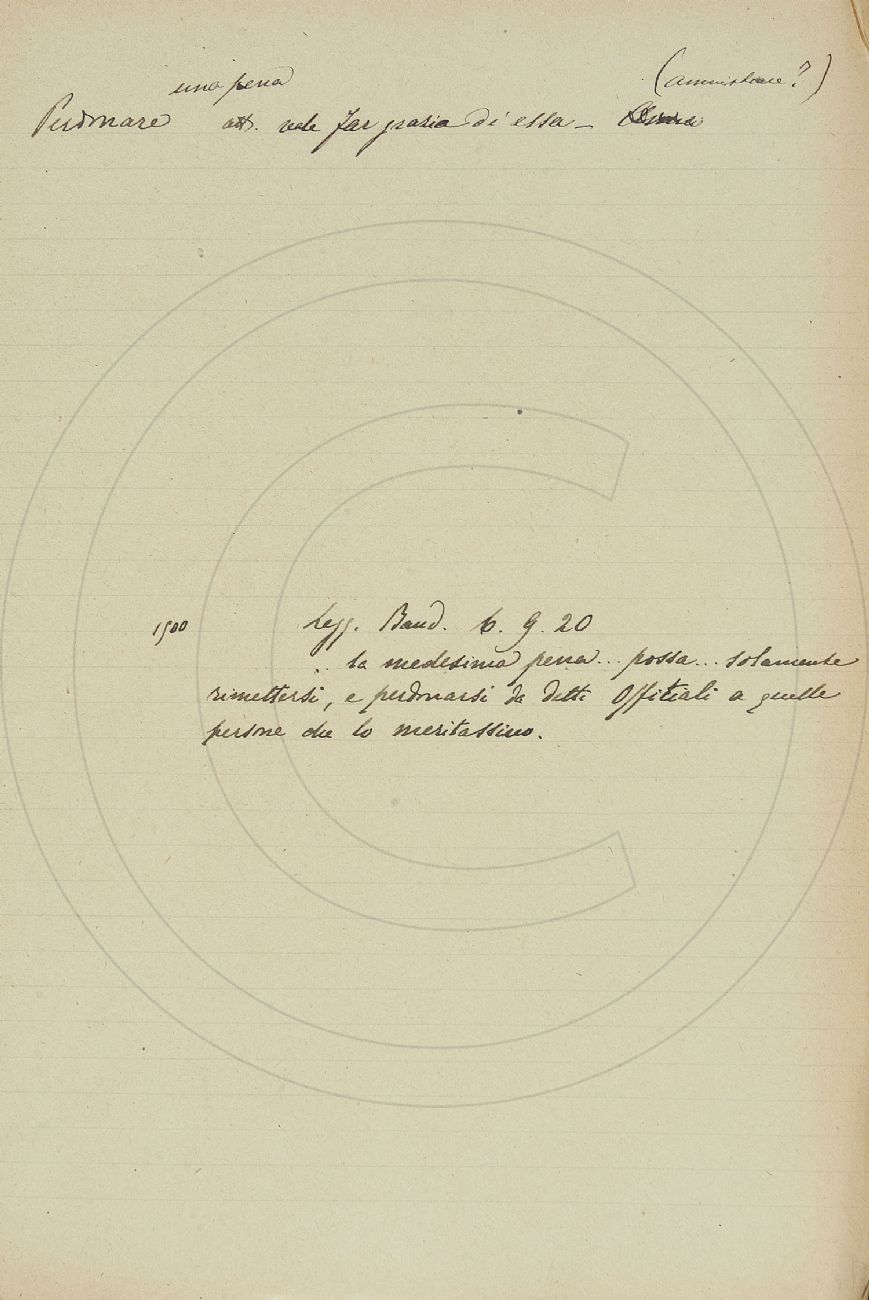 una pena (amnistiare?)
Perdonare att. vale far grazia di essa –
1500 Legg. Band. 6. 9. 20
.. la medesima pena... possa... solamente
rimettersi, e perdonarsi da detti Offitiali a quelle
persone che lo meritassino.